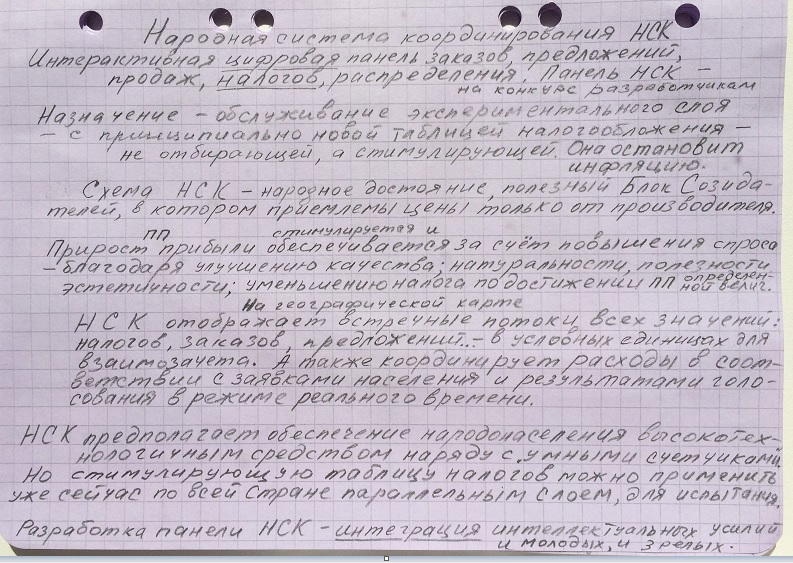 Народная система координирования НСК
Интерактивная цифровая панель заказов, предложений,
продаж, налогов, распределения. Панель НСК –
на конкурс разработчикам
Назначение – обслуживание экспериментального слоя
– с принципиально новой таблицей налогообложения –
не отбирающей, а стимулирующей. Она остановит
инфляцию.
Схема НСК – народное достояние, полезный Блок Созида-
телей, в котором приемлемы цены только от производителя.
ПП стимулируется и
Прирост прибыли обеспечивается за счёт повышения спроса
– благодаря улучшению качества; натуральности, полезности
эстетичности; уменьшению налога по достижении ПП определен-
ной велич.
На географической карте
НСК отображает встречные потоки всех значений:
налогов, заказов, предложений.– в условных единицах для
взаимозачета. А также координирует расходы в соот-
ветствии с заявками населения и результатами голо-
сования в режиме реального времени.
НСК предполагает обеспечение народонаселения высокотех-
нологичным средством наряду с "умными счетчиками".
Но стимулирующую таблицу налогов можно применить
уже сейчас по всей стране параллельным слоем, для испытания.
Разработка панели НСК – интеграция интеллектуальных усилий
и молодых, и зрелых.